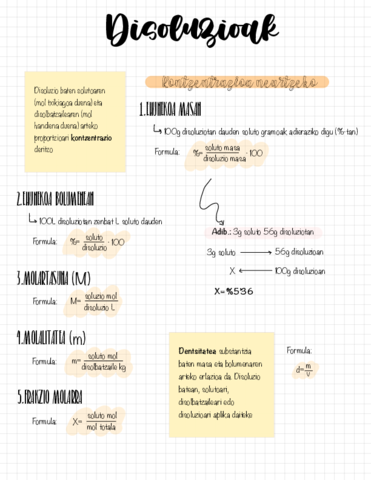 Disoluzioak
Disoluzio baten solutoaren
(mol txikiagoa duena) eta
disolbatzailearen (mol
handiena duena) arteko
proportzioari kontzentrazio
deritzo
Kontzentrazioa neurtzeko
1.EHUNEKOA MASAN
100g disoluziotan dauden soluto gramoak adieraziko digu (%-tan)
Formula: %= soluto masa / disoluzio masa · 100
Adib.: 3g soluto 56g disoluziotan
3g soluto 56g disoluzioan
X 100g disoluzioan
X=%5'36
2.EHUNEKOA BOLUMENEAN
100L disoluziotan zenbat L soluto dauden
Formula: %= soluto / disoluzio · 100
3.MOLARTASUNA (M)
Formula: M= soluzio mol / disoluzio L
4.MOLALITATEA (m)
Formula: m= soluto mol / disolbatzaile kg
5.FRAKZIO MOLARRA
Formula: X= soluto mol / mol totala
Dentsitatea substantzia
baten masa eta bolumenaren
arteko erlazioa da. Disoluzio
batean, solutoari,
disolbatzaileari edo
disoluzioari aplika dakieke
Formula:
d= m / V